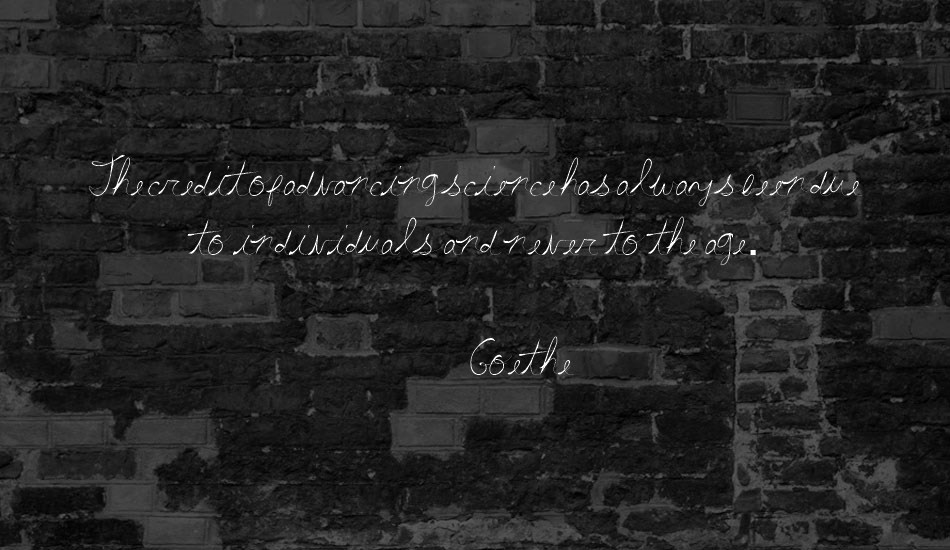 The credit of advancing science has always been due
to individuals and never to the age.
Goethe